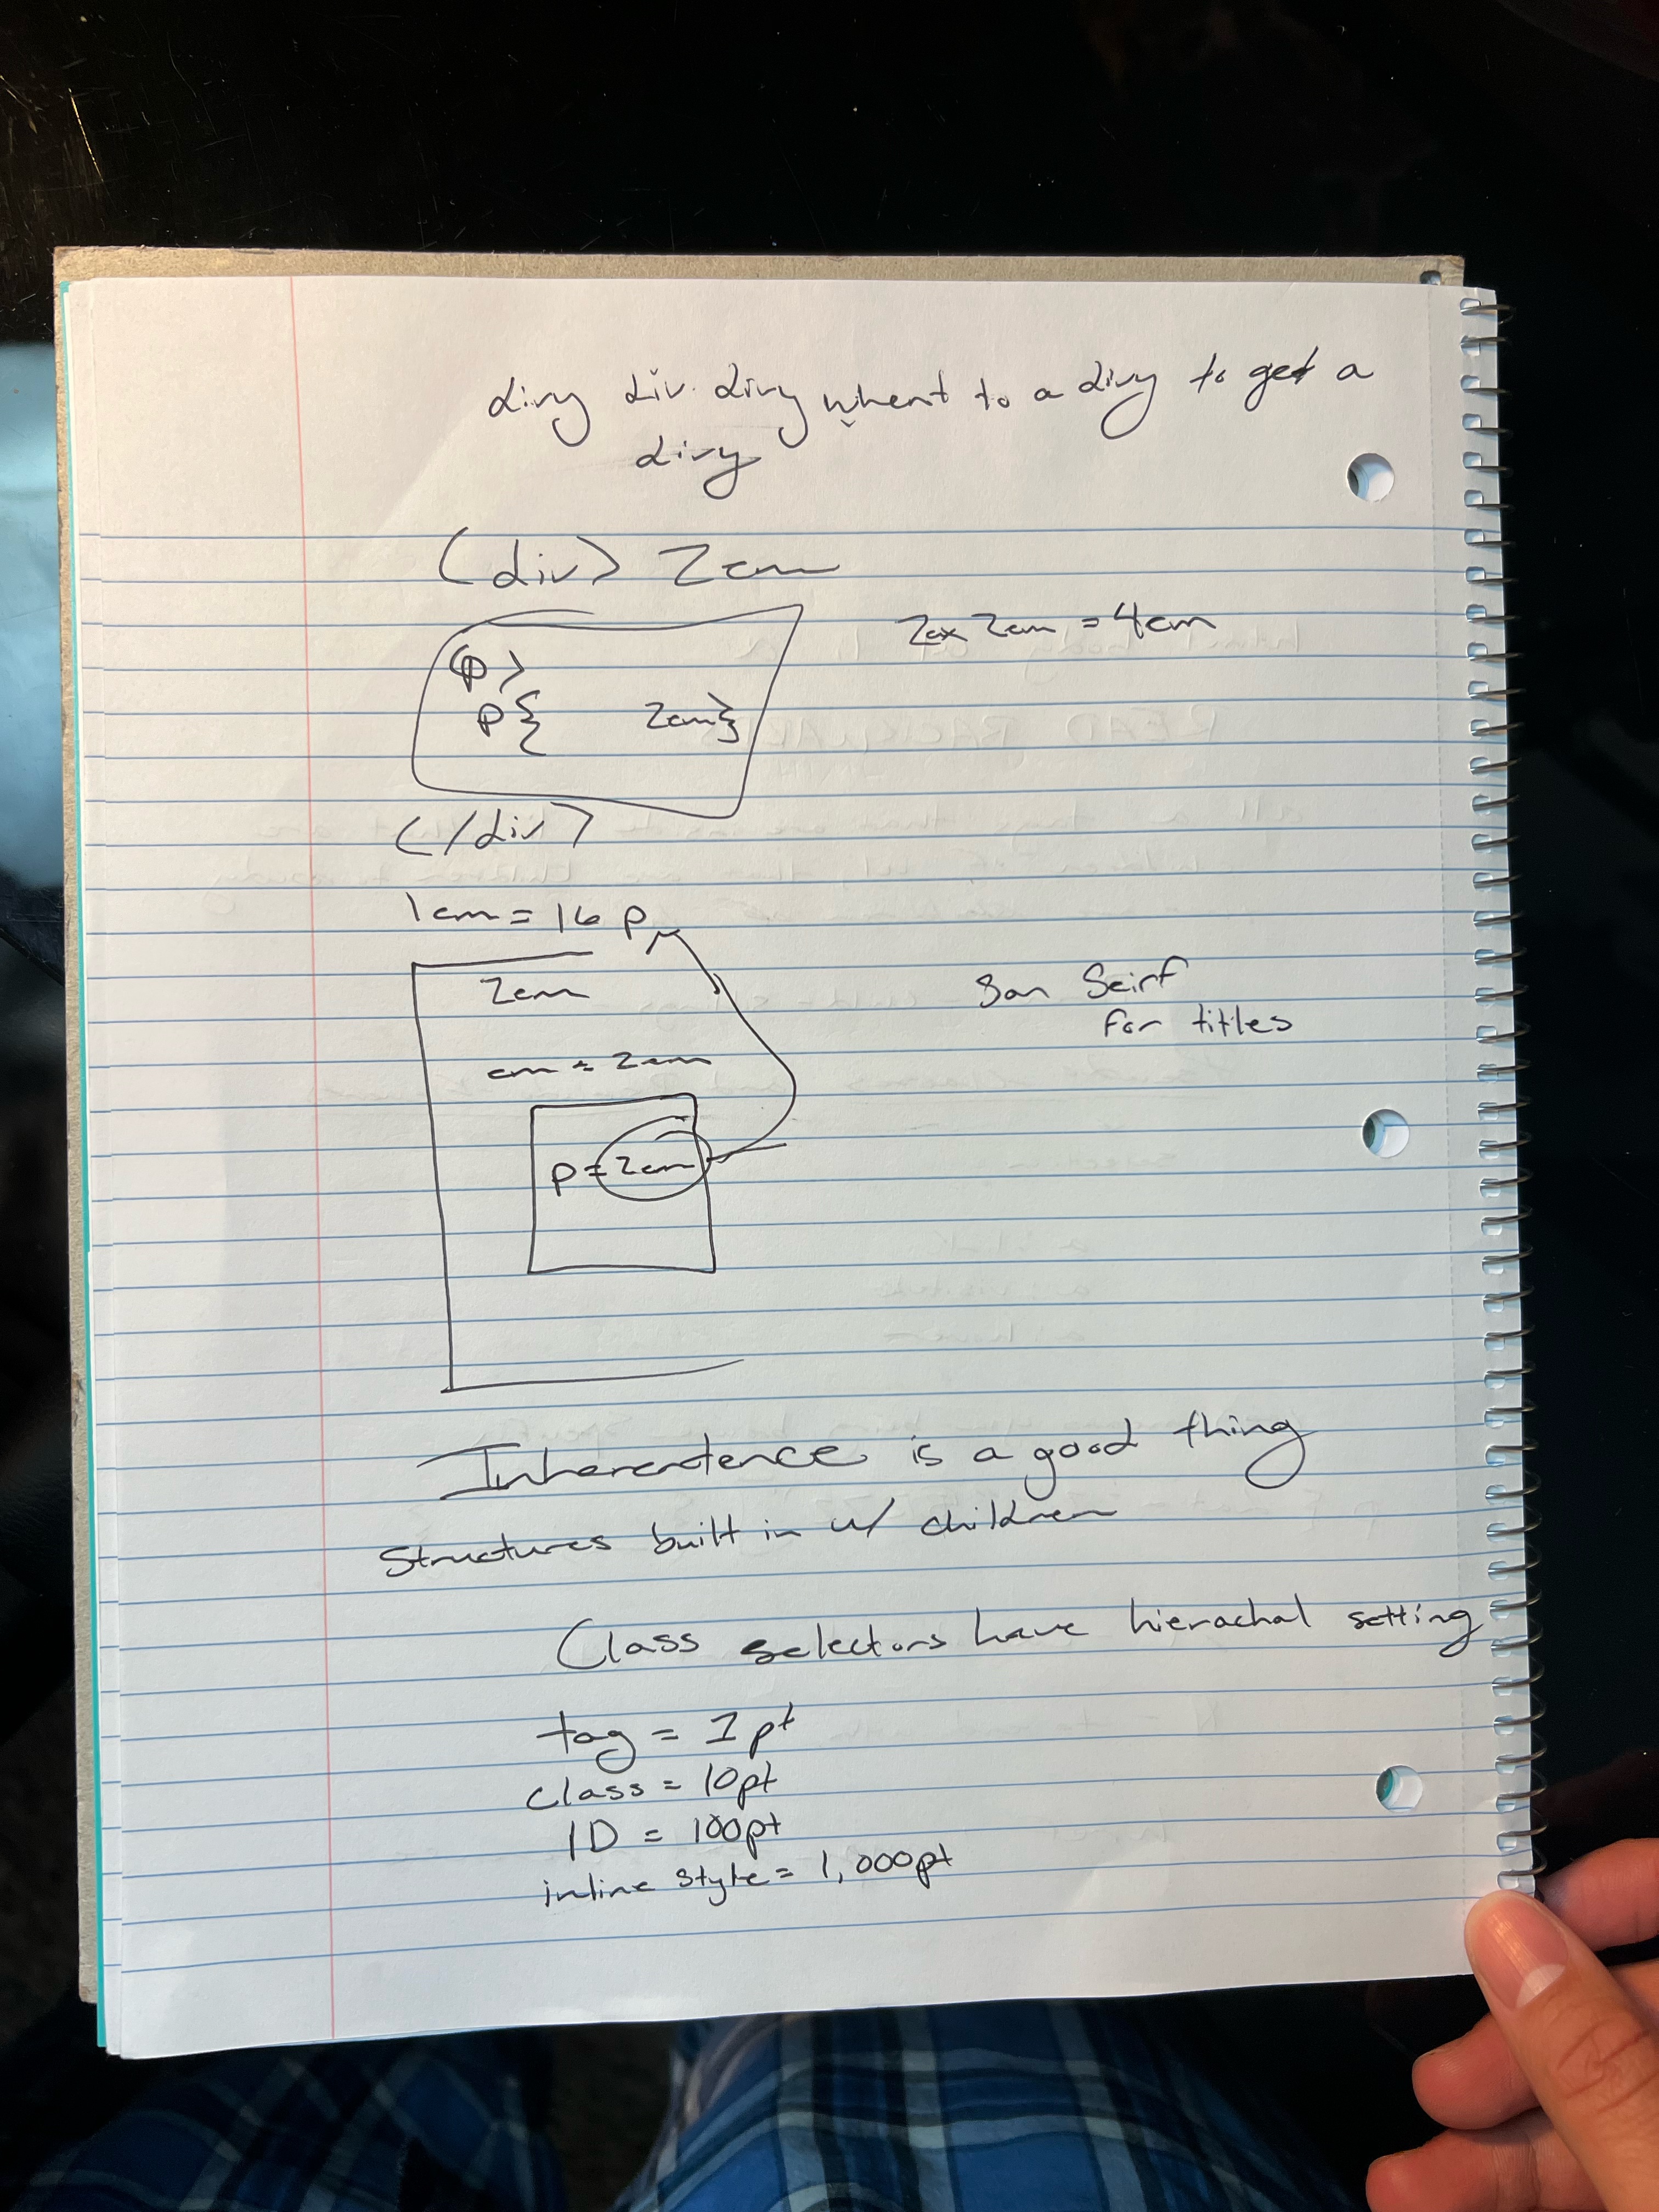 divy div. divy whent to a divy to get a
divy
<div> 2em
2em x 2em = 4em
<p>
p{ 2em}
</div>
1em = 16 p
2em
San Seirf
for titles
em = 2em
p = 2em
Inherentence is a good thing
Structures built in w/ children
Class selectors have hierachal setting
tag = 1pt
class = 10pt
ID = 100pt
inline style = 1,000pt